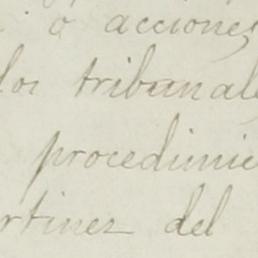 ó acciones
los tribunale
procedimie
rtinez del